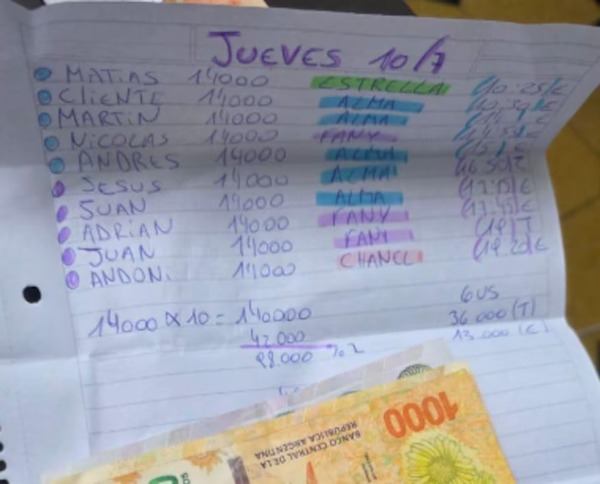 JUEVES 10/7
MATIAS 14000 ESTRELLA (10:25)E
CLIENTE 14000 ALMA
MARTIN 14000 ALMA
NICOLAS 14000 FANY
ANDRES 14000 ALMA
JESUS 14000 ALMA 16:50
JUAN 14000 ALMA
ADRIAN 14000 FANY
JUAN 14000 FANY
ANDONI 14000 CHANEL (19:20)E
14000 X 10 = 140000
42000
98.000
6US
36000 (T)
13.000 (E)
1000
BANCO CENTRAL DE LA
REPÚBLICA ARGENTINA